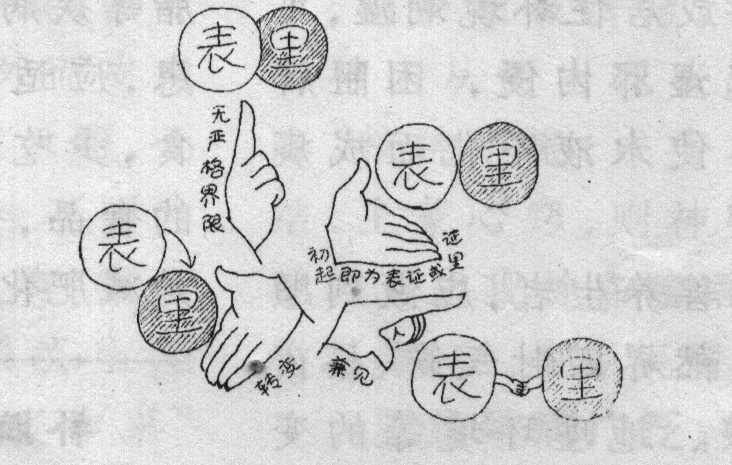 表 里
无严格界限
表 里
初起即为表证或里证
表
里
转变
兼见
人
表 里